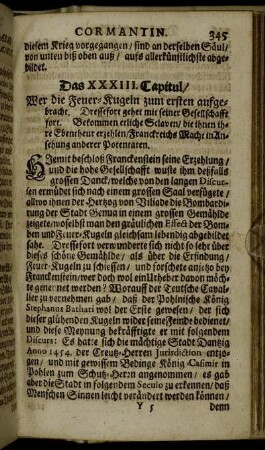 CORMANTIN. 345
diesem Krieg vorgegangen / sind an derselben Säul /
von unten biß oben auß / aufs allerkünstlichste abge-
bildet.
Das XXXIII. Capitul /
Wer die Feuer-Kugeln zum ersten aufge-
bracht. Dressefort gehet mit seiner Gesellschafft
fort. Bekommen etliche Sclaven / die ihnen ihre
Ebentheur erzehlen / Franckreichs Macht in An-
sehung anderer Potentaten.
HJemit beschloß Franckenstein seine Erzehlung /
und die hohe Gesellschafft wuste ihm deßfalls
grossen Danck / welche von den langen Discur-
sen ermüdet sich nach einem grossen Saal verfügete /
allwo ihnen der Hertzog von Viliade die Bombardi-
rung der Stadt Genua in einem grossen Gemählde
zeigete / woselbst man den gräulichen Effect der Bom-
ben und Feuer-Kugeln gleichsam lebendig abgebildet
sahe. Dressefort verwunderte sich nicht so sehr über
dieses schöne Gemählde / als über die Erfindung /
Feur-Kugeln zu schiessen / und forschete anjetzo bey
Franckenstein / wer doch wol ein Urheber davon möch-
te genennet werden? Worauff der Teutsche Cavai-
lier zu vernehmen gab / daß der Pohlnische König
Stephanus Bathori wol der Erste gewesen / der sich
dieser glühenden Kugeln wider seine Feinde bedienet /
und diese Meynung bekräfftigte er mit folgendem
Discurs: Es hatte sich die mächtige Stadt Dantzig
Anno 1454. der Creutz-Herren Jurisdiction entzo-
gen / und mit gewissem Bedinge König Casimir in
Pohlen zum Schutz-Herrn angenommen / es gab
aber die Stadt in folgendem Seculo zu erkennen / daß
Menschen Sinnen leicht verändert werden können /
Y 5 denn